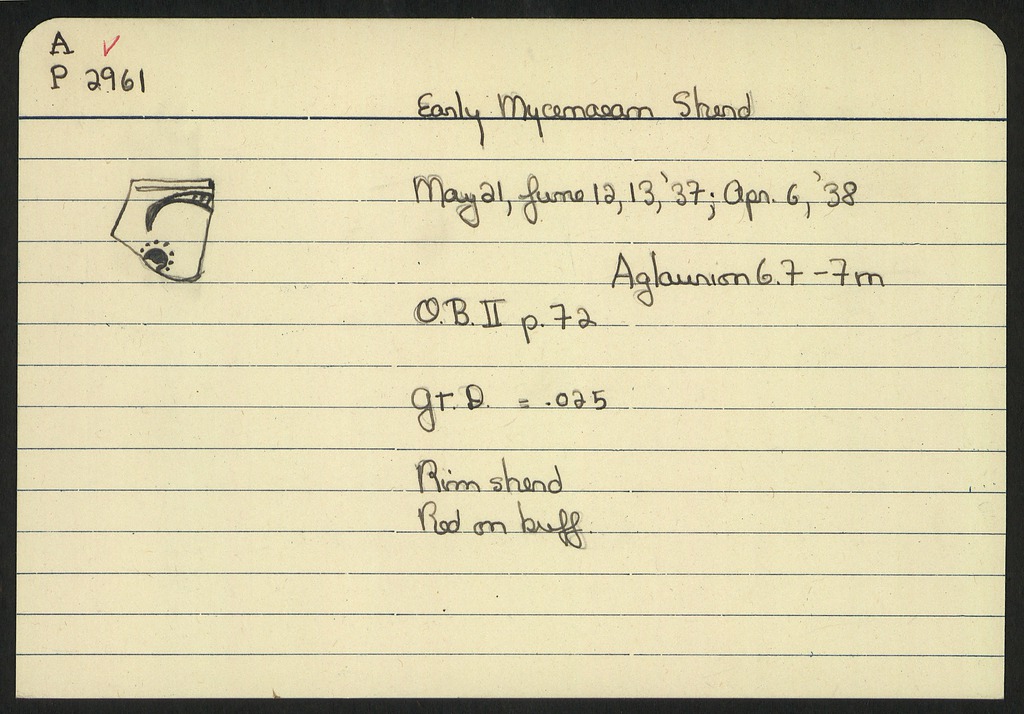 A ✓
P 2961
Early Mycenaean Sherd
May 21, June 12, 13, '37; Apr. 6, '38
Aglaurion 6.7 - 7m
O.B. II p. 72
gr. D. = .025
Rim sherd
Red on buff.